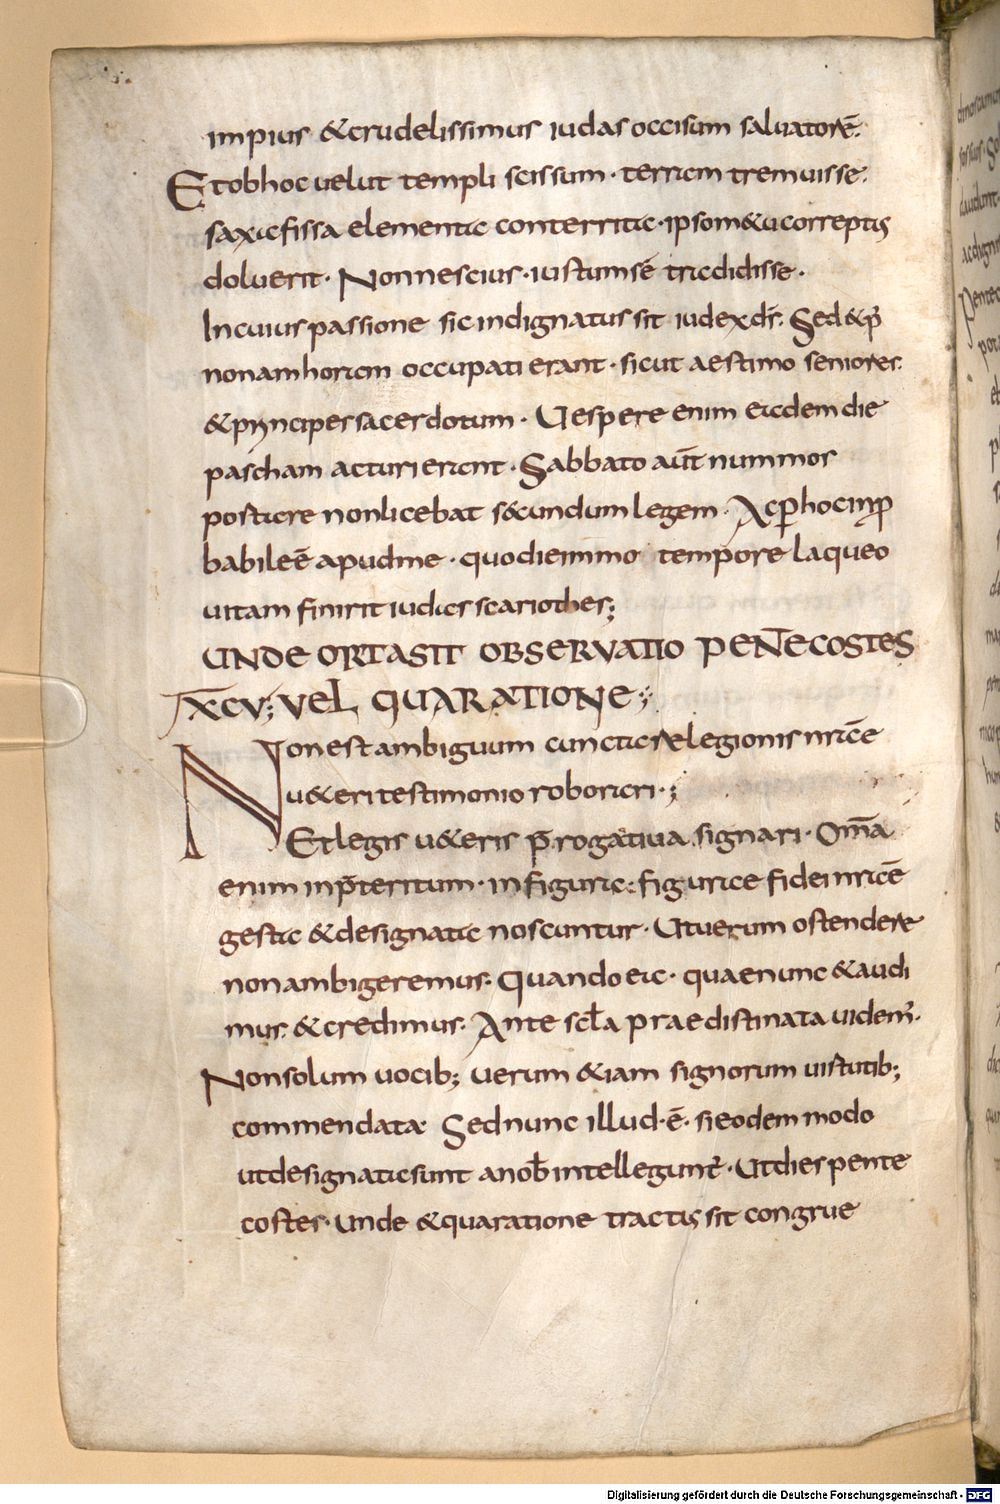 impius &crudelissimus iudas occisum saluatorē.
Etobhoc uelut templi scissum · terram tremuisse.
saxa fissa elementa conterrita · ipsom&u correptus
doluerit · Nonnescius · iustumsē tradidisse ·
Incuius passione sic indignatus sit iudex dr̄. Sed&p̄
nonamhoram occupati erant · sicut aestimo seniores.
&principes sacerdotum · Uespere enim eadem die
pascham acturi erant · Sabbato aūt nummos
postare nonlicebat s&cundum legem · Acphocinp
babileē apudme · quodiemimo tempore laqueo
uitam finirit iudas scariothes;
UNDE ORTASIT OBSERVATIO PENTECOSTES
XCV; VEL QUARATIONE;
Nonest ambiguum cunctae relegionis nrāe
u&eri testimonio roborari · ;
Etlegis u&eris p̄rogatiua signari · Om̄a
enim inp̄teritum · infigura: figurae fidei nrāe
gesta &designata noscuntur · Utuerum ostendere
nonambigeremus. Quando ea · quaenunc &audi
mus. &credimus. Ante scl̄a praedistinata uidem̄.
Nonsolum uocib; uerum &iam signorum uistutib;
commendata. Sednunc illud · ē · sieodem modo
utdesignatae sunt anob̄ intellegunt̄ · Utdies pente
costes · unde &quaratione tractus sit congrue
Digitalisierung gefördert durch die Deutsche Forschungsgemeinschaft - DFG